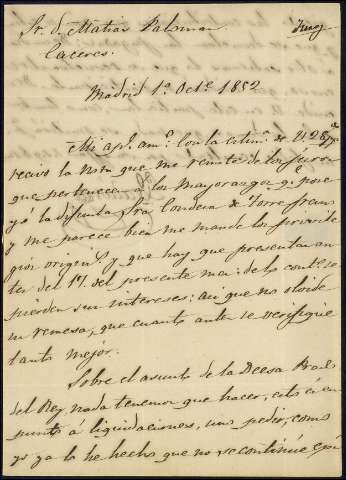 Sr. D. Matias Palomar
Caceres.
Madrid 1º Octe. 1852
Mi apº. amº. Con la estimª. de V. 28 ppº.
recivo la Nota que me remite de los Juros
que pertenecen a los Mayorazgos qe. pose
yó la difunta Sra. Condesa de Torre
y me parece bien me mande los privile
gios originˢ. y que hay que presentar an
tes del 17 del presente mes: de lo contº. se
pierden sus intereses: asi que no olvide
su remesa, que cuanto antes se verifique
tanto mejor.
Sobre el asunto de la Deesa
del Rey, nada tenemos que hacer, esto es en
punto á liquidaciones, sino pedir, como
yo ya lo he hecho que no se continúe